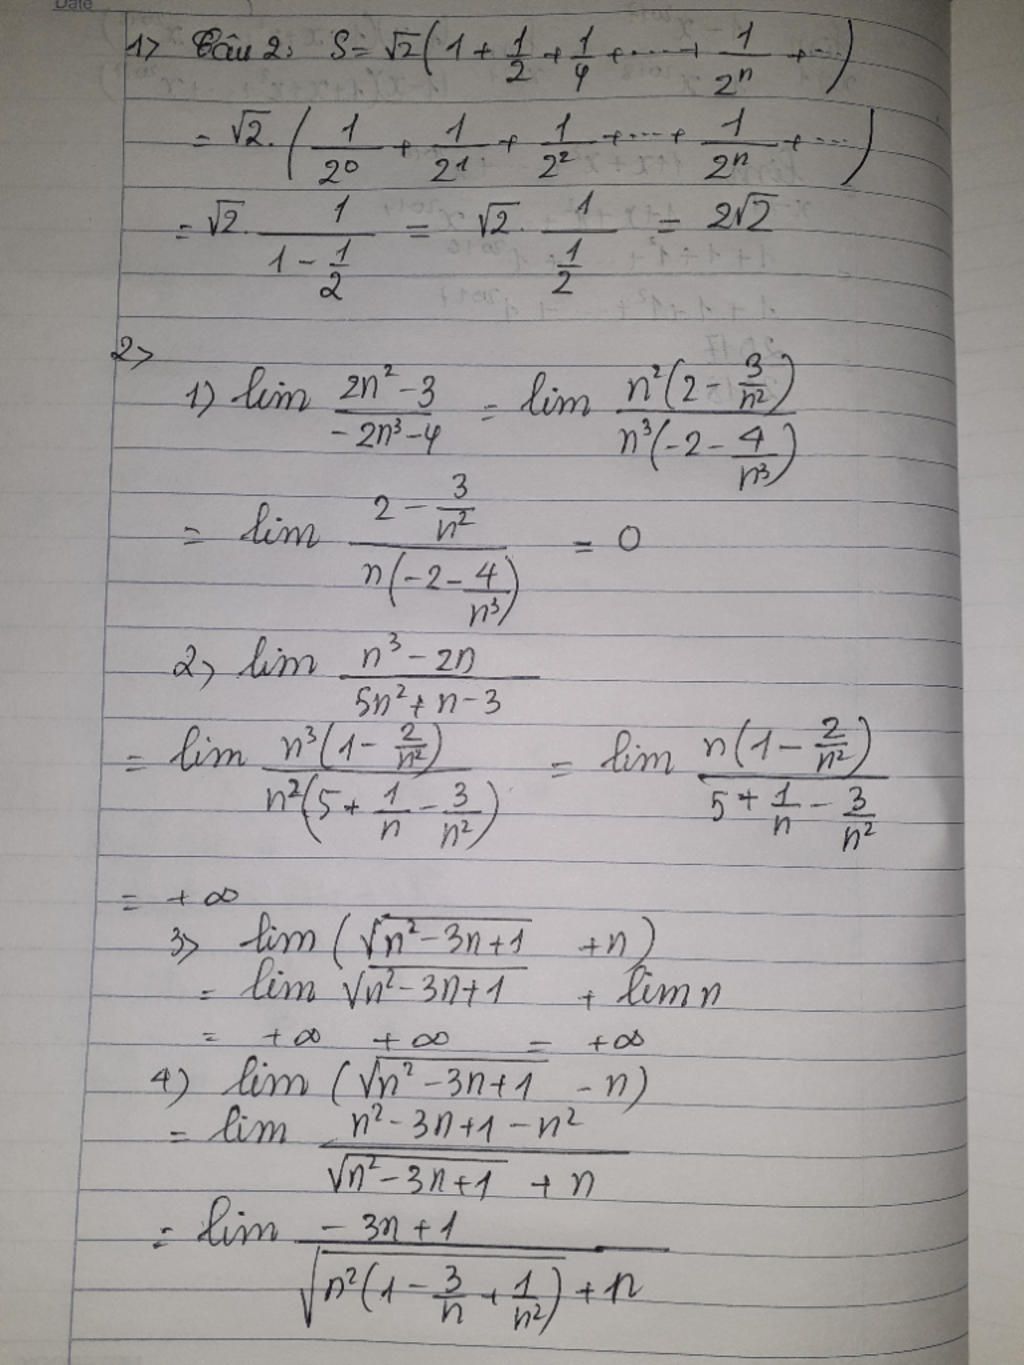 Date
1> Câu 2: S = √2 (1 + 1/2 + 1/4 + ... + 1/2ⁿ + ...)
= √2 . (1/2⁰ + 1/2¹ + 1/2² + ... + 1/2ⁿ + ...)
= √2 . 1/(1 - 1/2) = √2 . 1/(1/2) = 2√2
2>
1) lim (2n² - 3)/(-2n³ - 4) = lim (n²(2 - 3/n²))/(n³(-2 - 4/n³))
= lim (2 - 3/n²)/(n(-2 - 4/n³)) = 0
2> lim (n³ - 2n)/(5n² + n - 3)
= lim (n³(1 - 2/n²))/(n²(5 + 1/n - 3/n²)) = lim (n(1 - 2/n²))/(5 + 1/n - 3/n²)
= +∞
3> lim (√(n² - 3n + 1) + n)
= lim √(n² - 3n + 1) + lim n
= +∞ +∞ = +∞
4) lim (√(n² - 3n + 1) - n)
= lim (n² - 3n + 1 - n²)/(√(n² - 3n + 1) + n)
= lim (-3n + 1)/(√(n²(1 - 3/n + 1/n²)) + n)